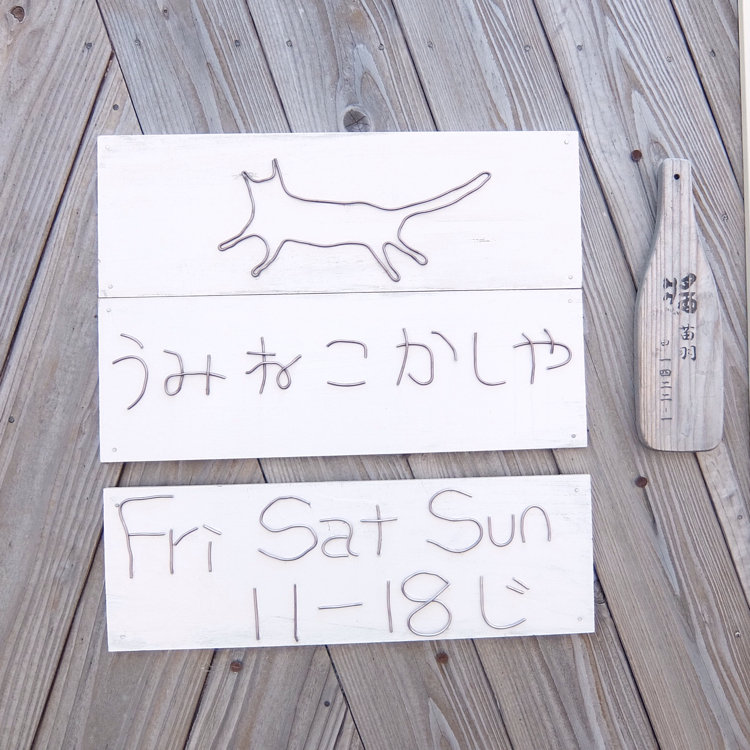 うみねこかしや
Fri Sat Sun
11-18じ
苗羽
甲一四二二-1